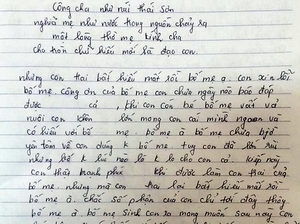 Công cha như núi thái sơn
nghĩa mẹ như nước trong nguồn chảy ra
một lòng thờ mẹ kính cha
cho tròn chữ hiếu mới là đạo con.
những con trai bất hiếu mất rồi bố mẹ ạ. con xin lỗi
bố mẹ. công ơn của bố mẹ con chưa ngày nào báo đáp
được cả, khi con còn bé bố mẹ vất vả
nuôi con khôn lớn mong con cái mình ngoan và
có hiếu với bố mẹ. bố mẹ à bố mẹ chưa
yên tâm về con đúng k bố mẹ. tuy con đã lớn rồi
nhưng bố k lúc nào là k lo cho con cả. kiếp này
con thấy hạnh phúc khi được làm con trai của
bố mẹ. nhưng mà con trai lại bất hiếu mất rồi
bố mẹ ạ. chắc số phận của con chỉ tới đây thôi
bố mẹ ạ. bố mẹ sinh con ra mong muốn sau này con